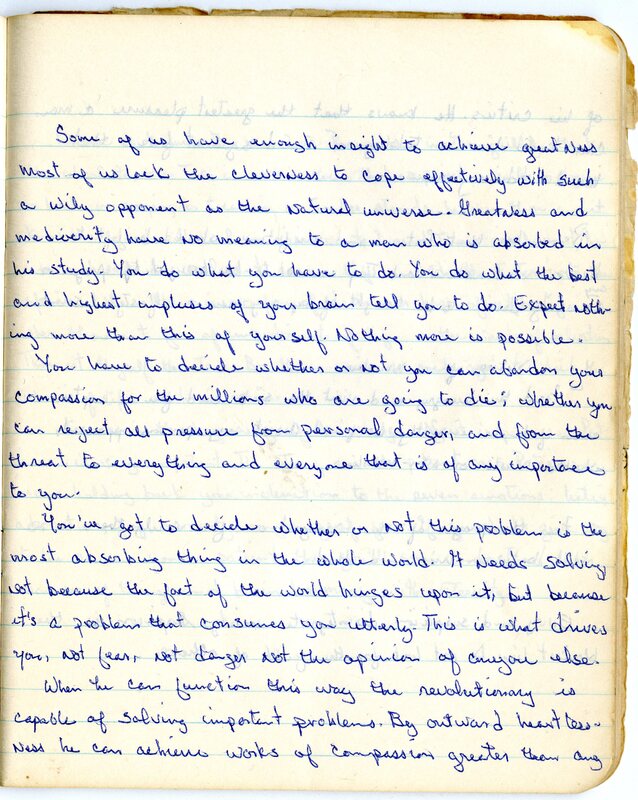 Some of us have enough insight to achieve greatness
most of us lack the cleverness to cope effectively with such
a wily opponent as the natural universe. Greatness and
mediverity have no meaning to a man who is absorbed in
his study. You do what you have to do. You do what the best
and highest impluses of your brain tell you to do. Expect noth-
ing more than this of yourself. Nothing more is possible.
You have to decide whether or not you can abandon your
compassion for the millions who are going to die; whether you
can reject all pressure from personal danger, and from the
threat to everything and everyone that is of any importance
to you.
You've got to decide whether or not this problem is the
most absorbing thing in the whole world. It needs solving,
not because the fact of the world hinges upon it, but because
it's a problem that consumes you utterly. This is what drives
you, not fear, not danger not the opinion of anyou else.
When he can function this way the revolutionary is
capable of solving important problems. By outward heartless-
ness he can achieve works of compassion greater than any